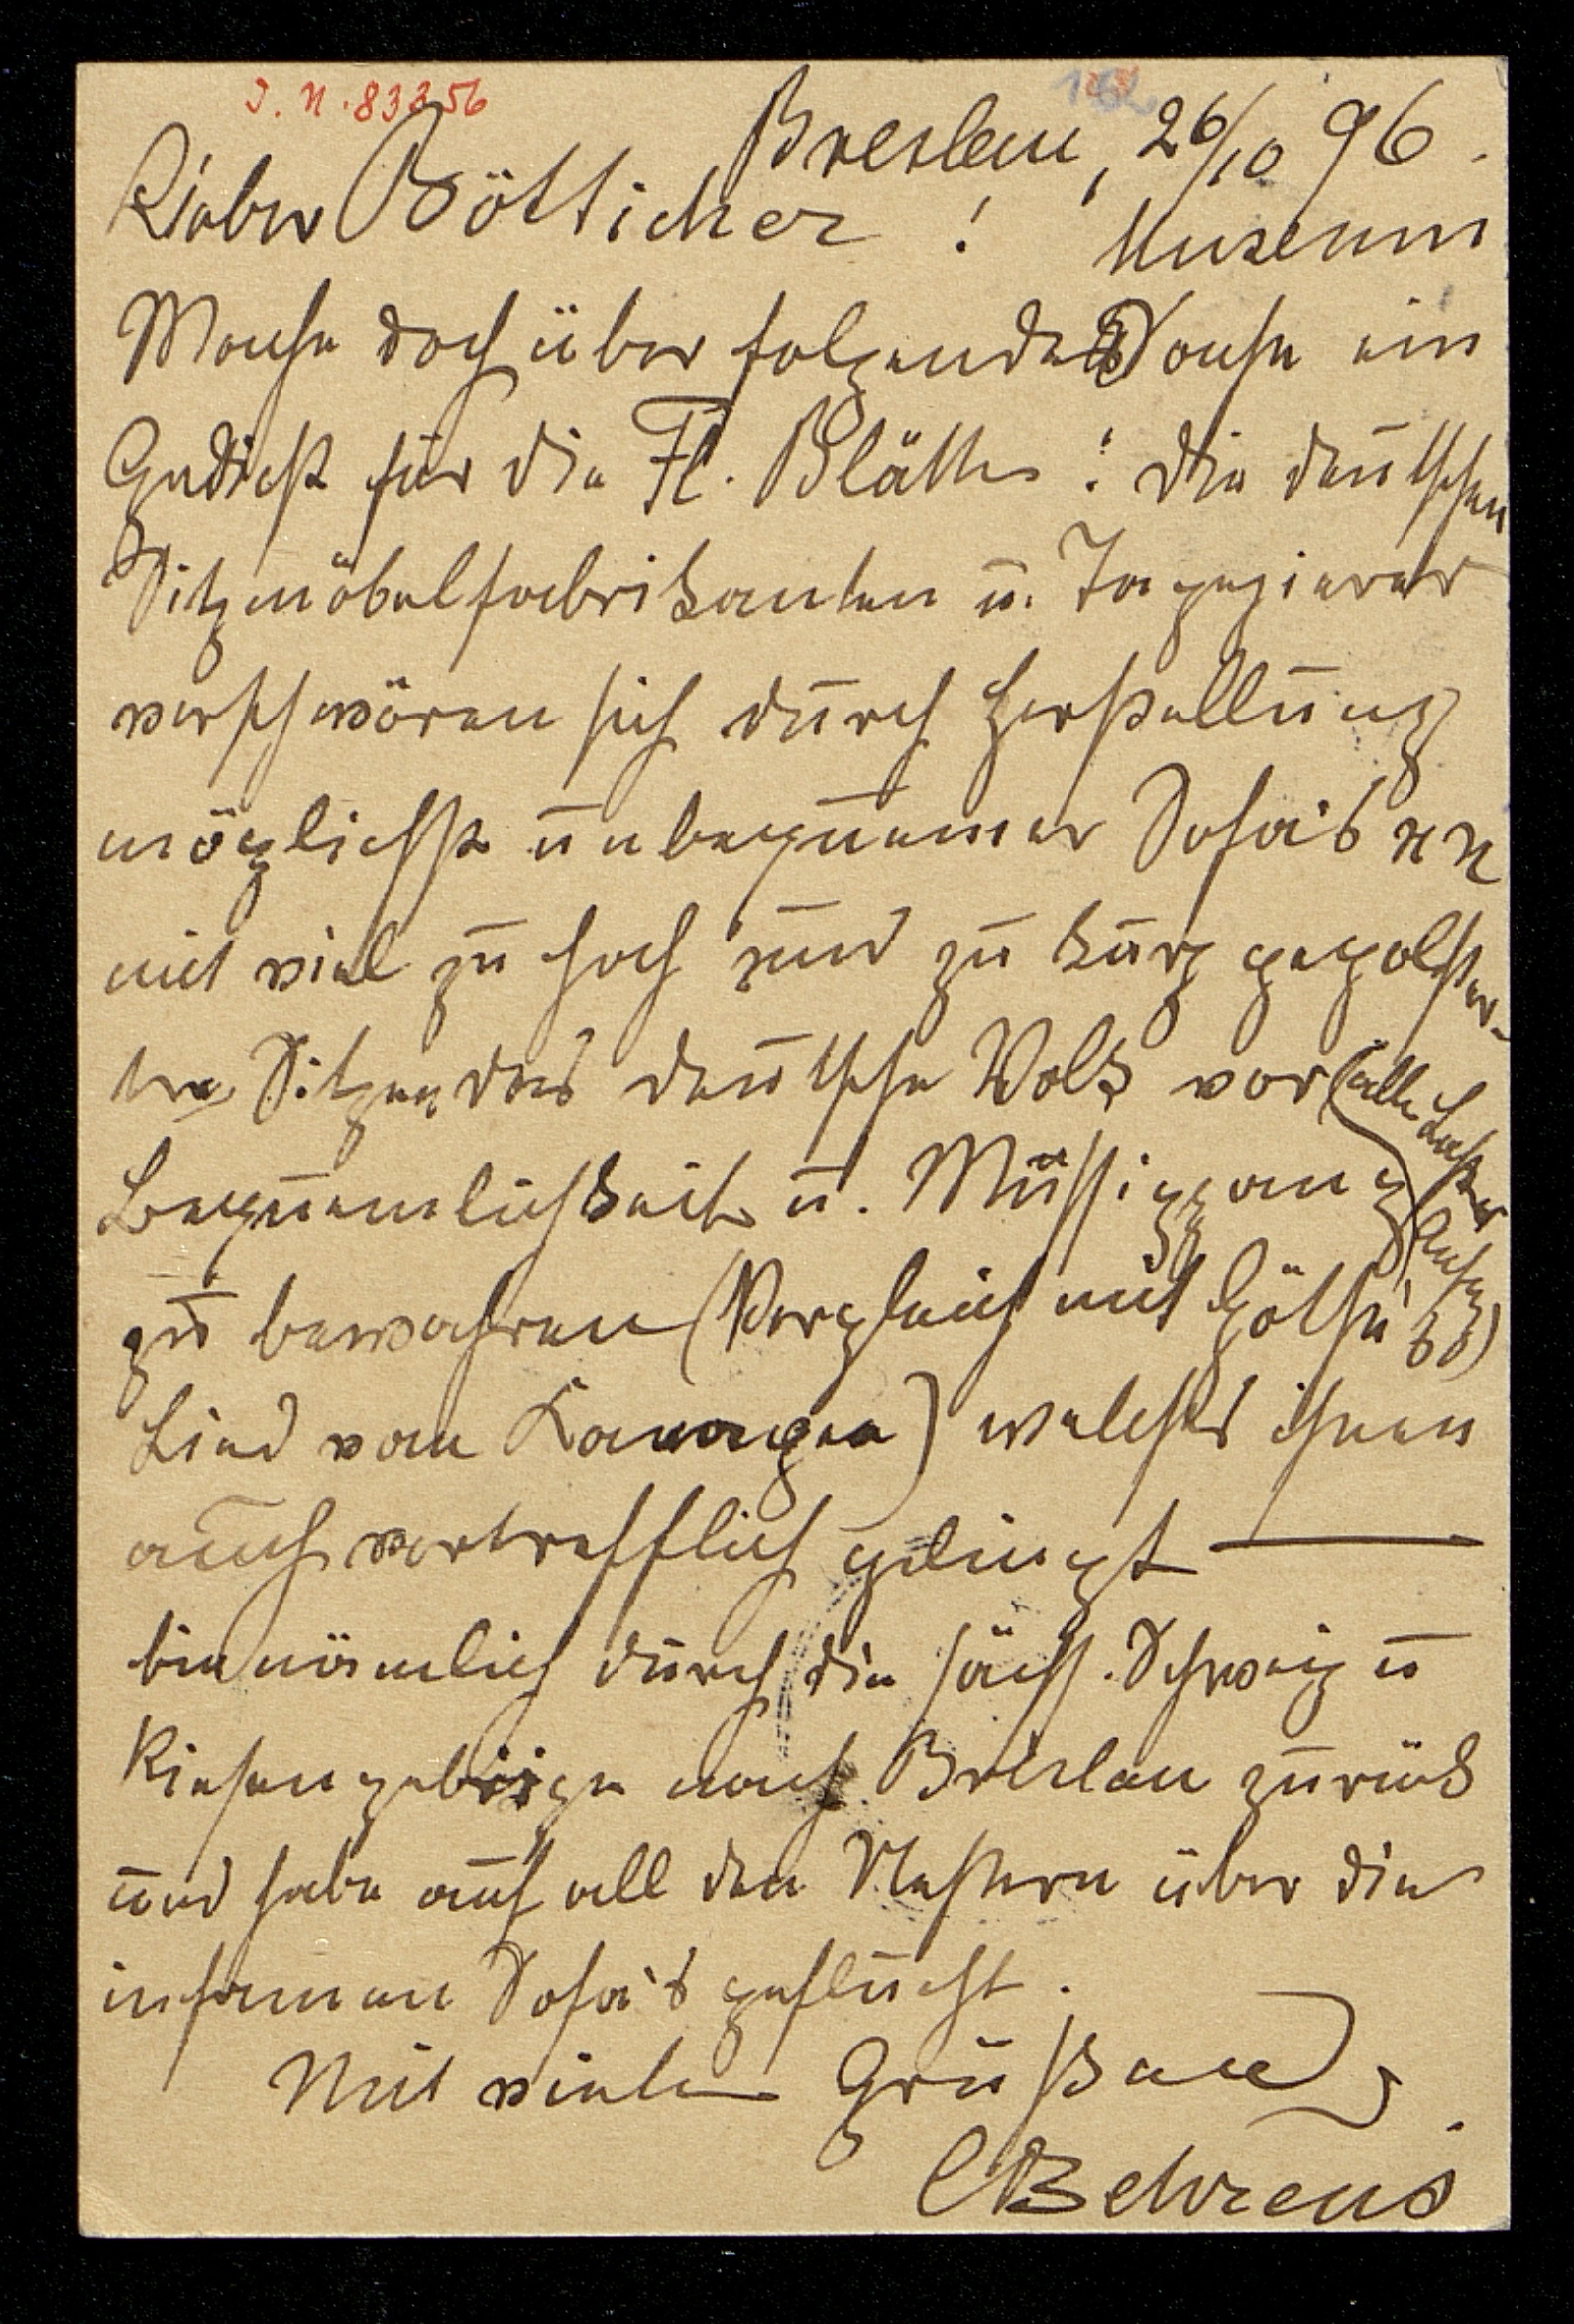 I. N. 83356
Breslau, 26/10 96.
Lieber Bötticher!
Museum
Mache doch über folgendes Sache ein
Gedicht für die Fl. Blätter: Die deutschen
Sitzmöbelfabrikanten u. Tapezierer
verschwören sich durch Herstellung
möglichst unbequemer Sofa's
mit viel zu hoch und zu kurz gepolster-
ten Sitzen das deutsche Volk vor
Bequemlichkeit u. Müssiggang
(aller Laster Anfang)
zu bewahren (Vergleich mit Göthe's
Lied vom Kanapee) welches ihnen
auch vortrefflich gelingt —
bin nämlich durch die sächs. Schweiz u
Riesengebirge nach Breslau zurück
und habe auf all den Nestern über die
infamen Sofa's geflucht.
Mit vielen Grüßen
CBehrens